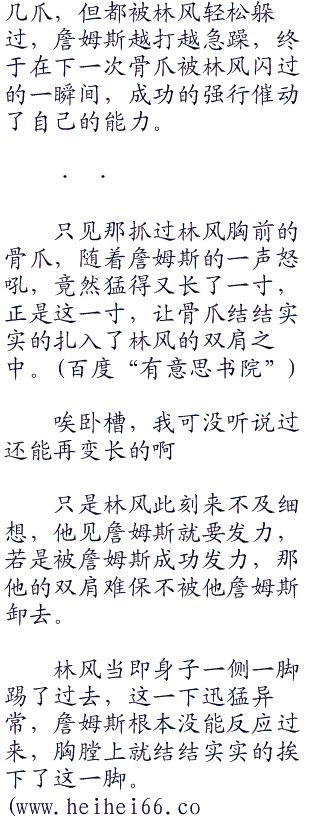 几爪，但都被林风轻松躲
过，詹姆斯越打越急躁，终
于在下一次骨爪被林风闪过
的一瞬间，成功的强行催动
了自己的能力。
. .
只见那抓过林风胸前的
骨爪，随着詹姆斯的一声怒
吼，竟然猛得又长了一寸，
正是这一寸，让骨爪结结实
实的扎入了林风的双肩之
中。(百度“有意思书院”)
唉卧槽，我可没听说过
还能再变长的啊
只是林风此刻来不及细
想，他见詹姆斯就要发力，
若是被詹姆斯成功发力，那
他的双肩难保不被他詹姆斯
卸去。
林风当即身子一侧一脚
踢了过去，这一下迅猛异
常，詹姆斯根本没能反应过
来，胸膛上就结结实实的挨
下了这一脚。
(www.heihei66.co